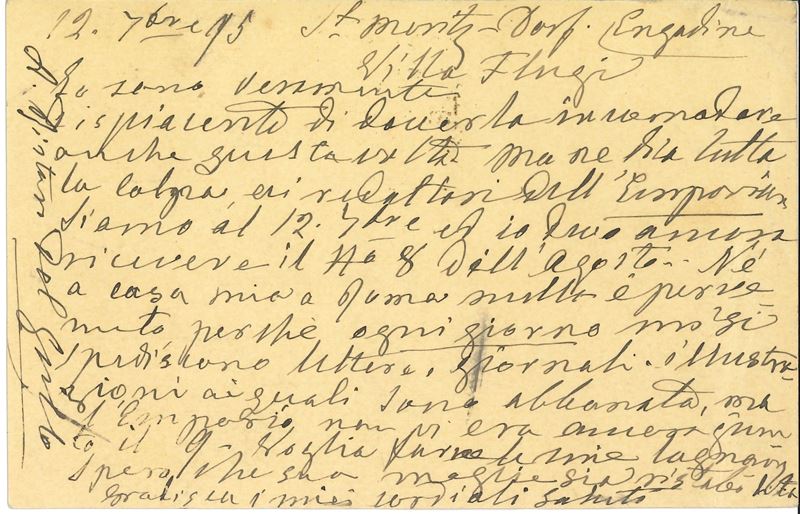 12. 7bre 95 St. Moritz-Dorf. Engadine
Villa Flugi
Io sono veramente
dispiacente di doverla incomodare
anche questa volta, ma ne dia tutta
la colpa ai redattori dell'Emporium
Siamo al 12. 7bre ed io devo ancora
ricevere il No 8 dell'Agosto. Né
a casa mia a Roma nulla è perve
nuto perchè ogni giorno mi si
spediscono lettere, giornali, illustra-
zioni ai quali sono abbonata, ma
l'Emporio non vi era ancora giun
to il 9. Voglia farne le mie lagnanze
Spero che sua moglie sia ristabilita
Gradisca i miei cordiali saluti